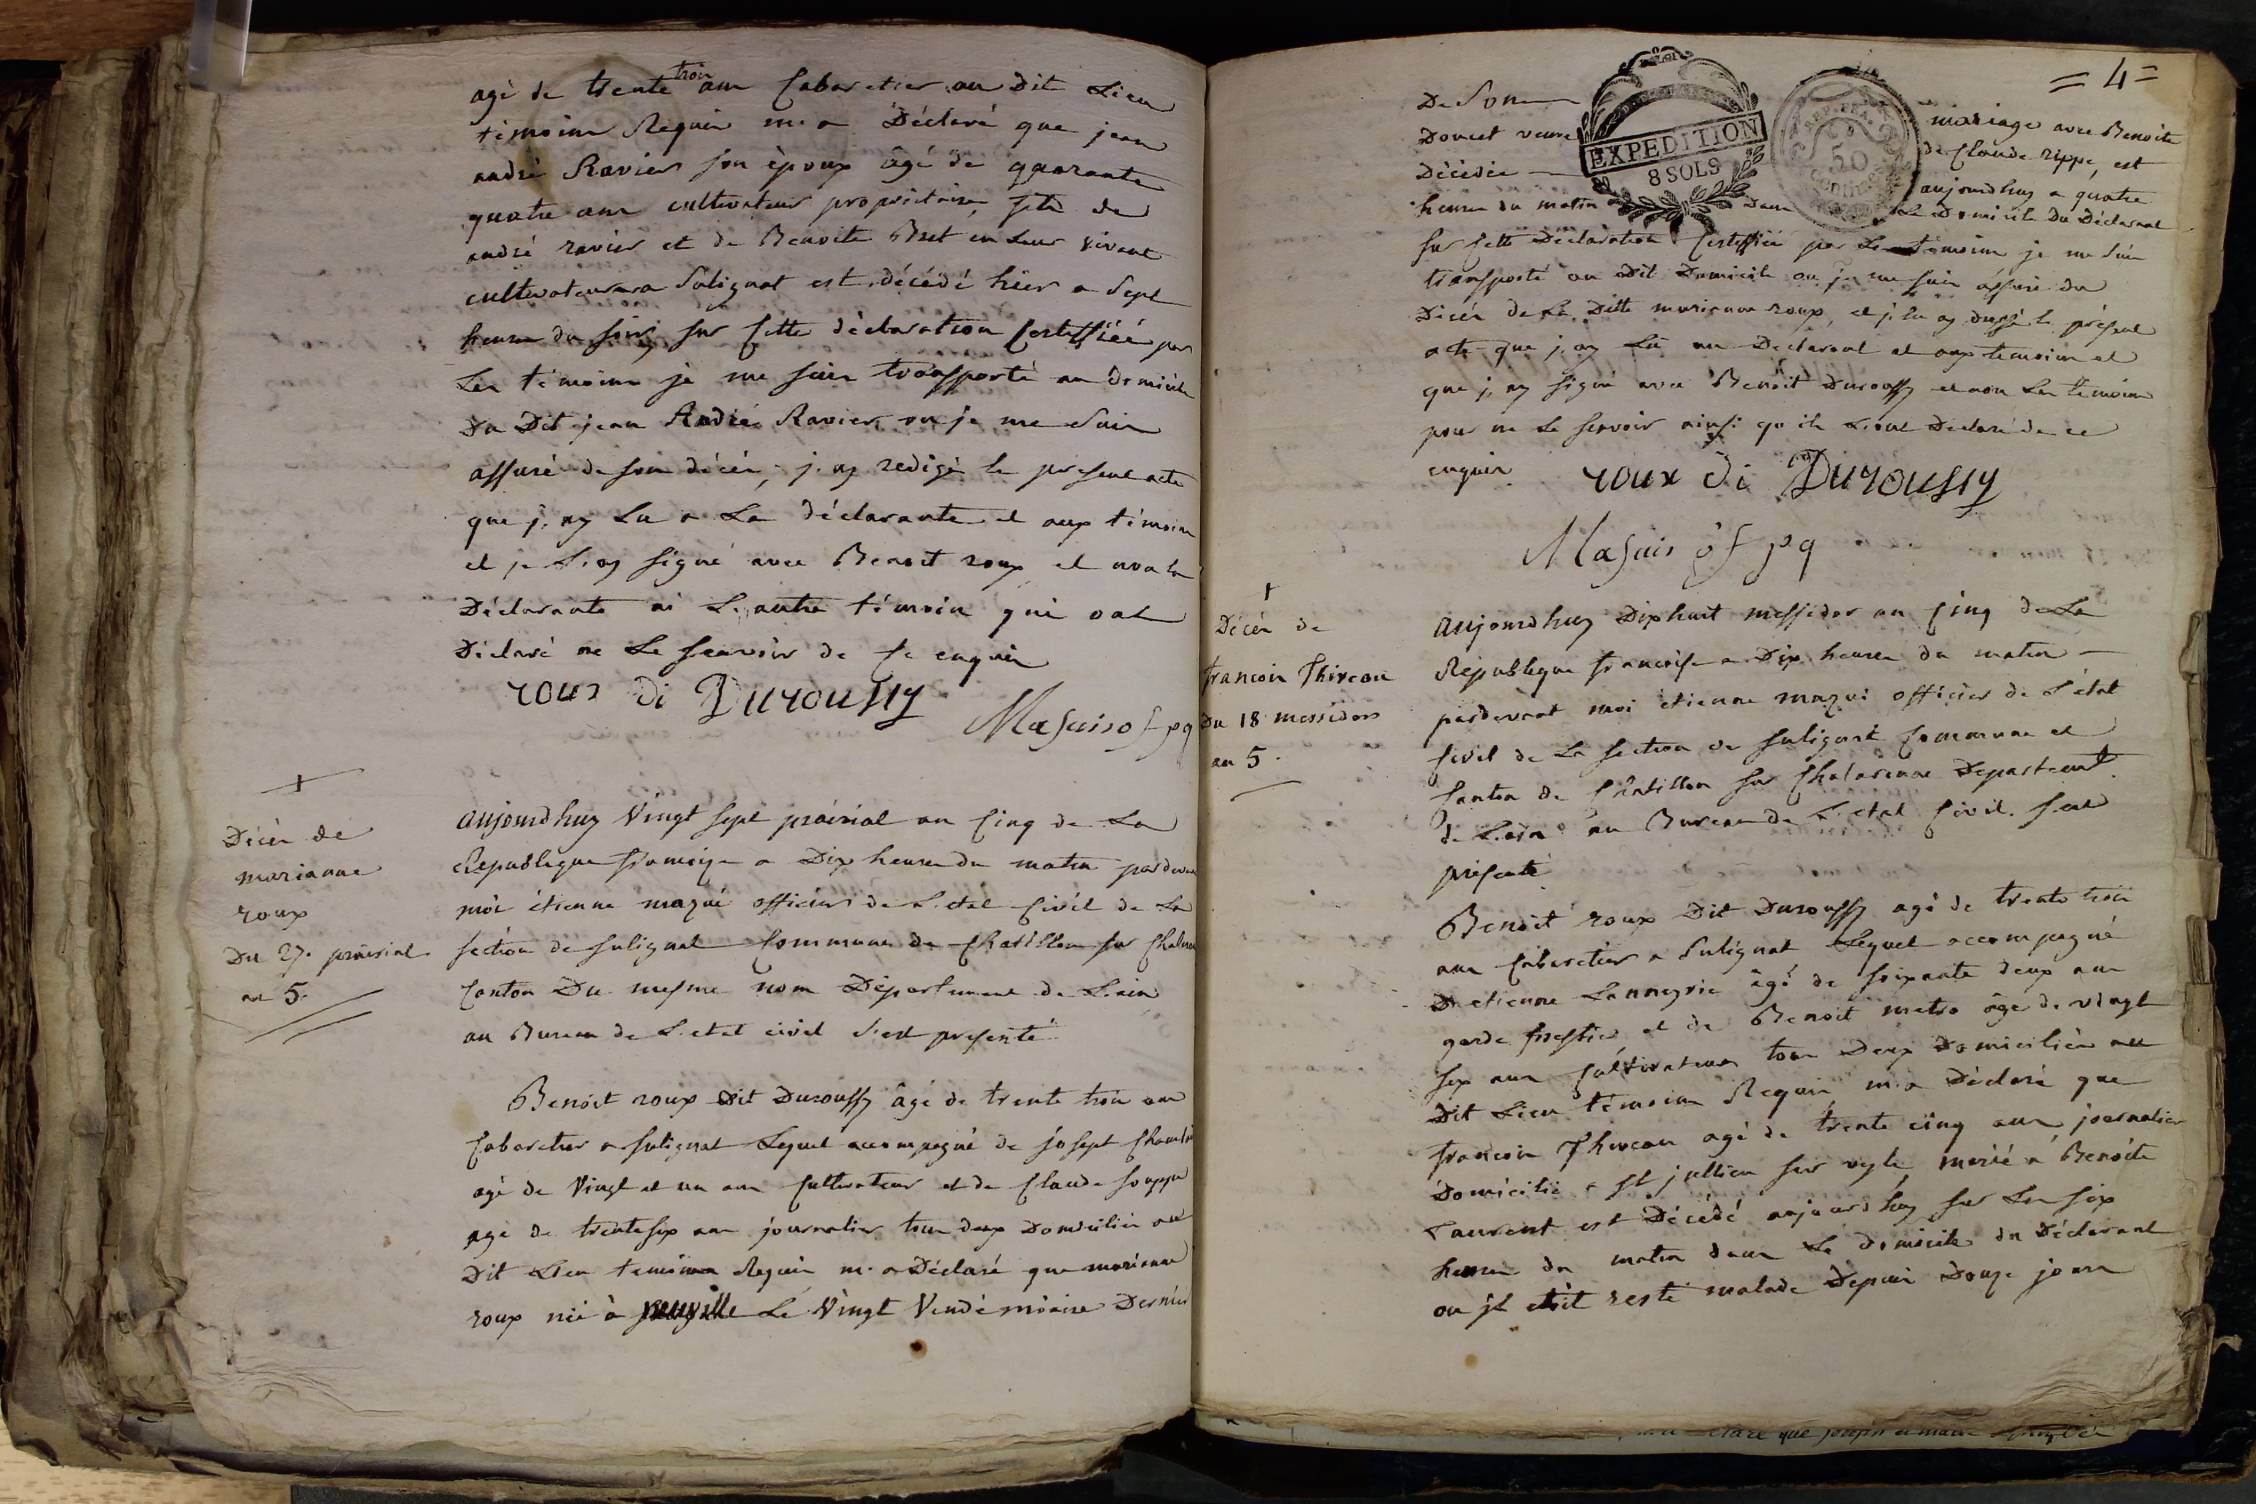 trois
agé de trente ans Cabaretier au Dit Lieu
témoins Requis m'a Déclaré que jean
andré Ravier son époux âgé de quarante
quatre ans cultivateur propriétaire, fils de
andré ravier et de Benoite Bret en Leur vivant
cultivateurs a Sulignat est décédé hier a Sept
heures du soir, sur Cette déclaration Certiffiéé par
Les témoins je me suis transporté au domicile
Du Dit jean André Ravier, ou je me suis
assuré de son décés, j'ay redigé le present acte
que j'ay Lu a La déclarante et aux témoins
et je L'ay signé avec Benoit roux et non la
Déclarante ni L'autre témoin qui ont
Déclaré ne Le scavoir de ce enquis
roux di Duroussy
Masuis of pq
+
Décés de
marianne
roux
Du 27. prairial
an 5.
aujourdhuy Vingt sept prairial an Cinq de La
Republique francoise a Dix heures du matin pardevant
moi étienne mazué officier de L'etat Civil de La
séction de sulignat Commune de Chatillon sur Chalaronne
Canton Du mesme nom Département de L'ain
au Bureau de L'etat civil s'est presenté
Benoit roux Dit Duroussy âgé de trente trois ans
Cabaretier a sulignat Lequel accompagné de joseph
agé de Vingt et un ans Cultivateur et de Claude
agé de trente six ans journalier tous deux Domiciliés au
Dit Lieu temoins Requis m'a Déclaré que marianne
roux née à neuville Le Vingt Vendémiaire Dernier
= 4 =
EXPEDITION
8 SOLS
REP. FRA.
50
centimes
De Son mariage avec Benoite
Doucet veuve de Claude rippe, est
Décédée aujourdhuy a quatre
heures du matin Dans Le Domicile Du Déclarant
sur Cette Déclaration Certiffiée par Les témoins je me suis
transporté au Dit Domicile ou je me suis assuré du
Décés de La Ditte marianne roux, et j'en ay dressé le présent
acte que j'ay Lu au Déclarant et aux temoins et
que j'ay signé avec Benoit Duroussy et non Les temoins
pour ne Le scavoir ainsi qu'ils L'ont Declaré de ce
enquis.
roux di Duroussy
Masuis of pq
+
Décés de
francois Thiveau
Du 18 messidor
an 5.
aujourdhuy Dix huit messidor an Cinq de La
Republique francoise a Dix heures du matin
pardevant moi étienne mazué officier de L'état
Civil de La section de sulignat Commune et
Canton de Chatillon sur Chalaronne Departement
de L'ain au Bureau de L'etat Civil. s'est
présenté
Benoit roux Dit Duroussy agé de trente trois
ans Cabaretier a Sulignat Lequel accompagné
D'etienne Lanneyrie âgé de soixante deux ans
garde et de Benoit âgé de vingt
six ans Cultivateur tous Deux Domiciliés au
Dit Lieu témoins Requis, m'a Déclaré que
francois Thiveau agé de trente cinq ans journalier
Domicilié a St jullien sur veyle, marié a Benoite
Laurent est Décédé aujourdhuy sur Les six
heures du matin dans Le domicile du Déclarant
ou jl etoit resté malade Depuis Douze jours